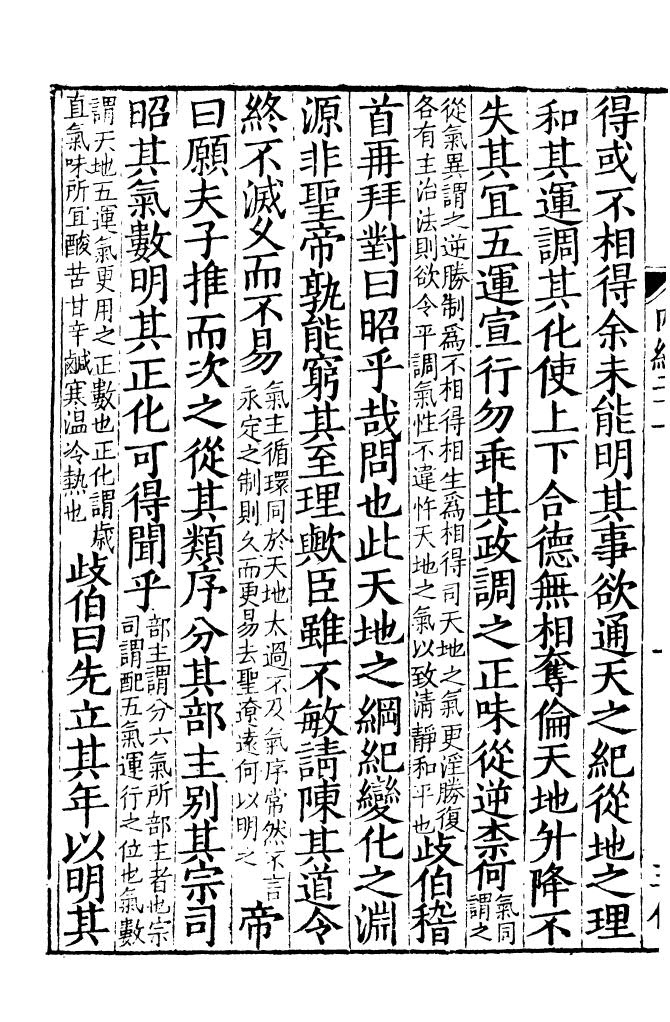 得或不相得余未能明其事欲通天之紀從地之理
和其運調其化使上下合德無相奪倫天地升降不
失其宜五運宣行勿乖其政調之正味從逆柰何
氣同
謂之
從氣異謂之逆勝制爲不相得相生爲相得司天地之氣更淫勝復
各有主治法則欲令平調氣性不違忤天地之氣以致清靜和平也
歧伯稽
首再拜對曰昭乎哉問也此天地之綱紀變化之淵
源非聖帝孰能窮其至理歟臣雖不敏請陳其道令
終不滅久而不易
氣主循環同於天地太過不及氣序常然不言
永定之制則久而更易去聖遼遠何以明之
帝
曰願夫子推而次之從其類序分其部主別其宗司
昭其氣數明其正化可得聞乎
部主謂分六氣所部主者也宗
司謂配五氣運行之位也氣數
謂天地五運氣更用之正數也正化謂歲
直氣味所宜酸苦甘辛鹹寒溫冷熱也
歧伯曰先立其年以明其